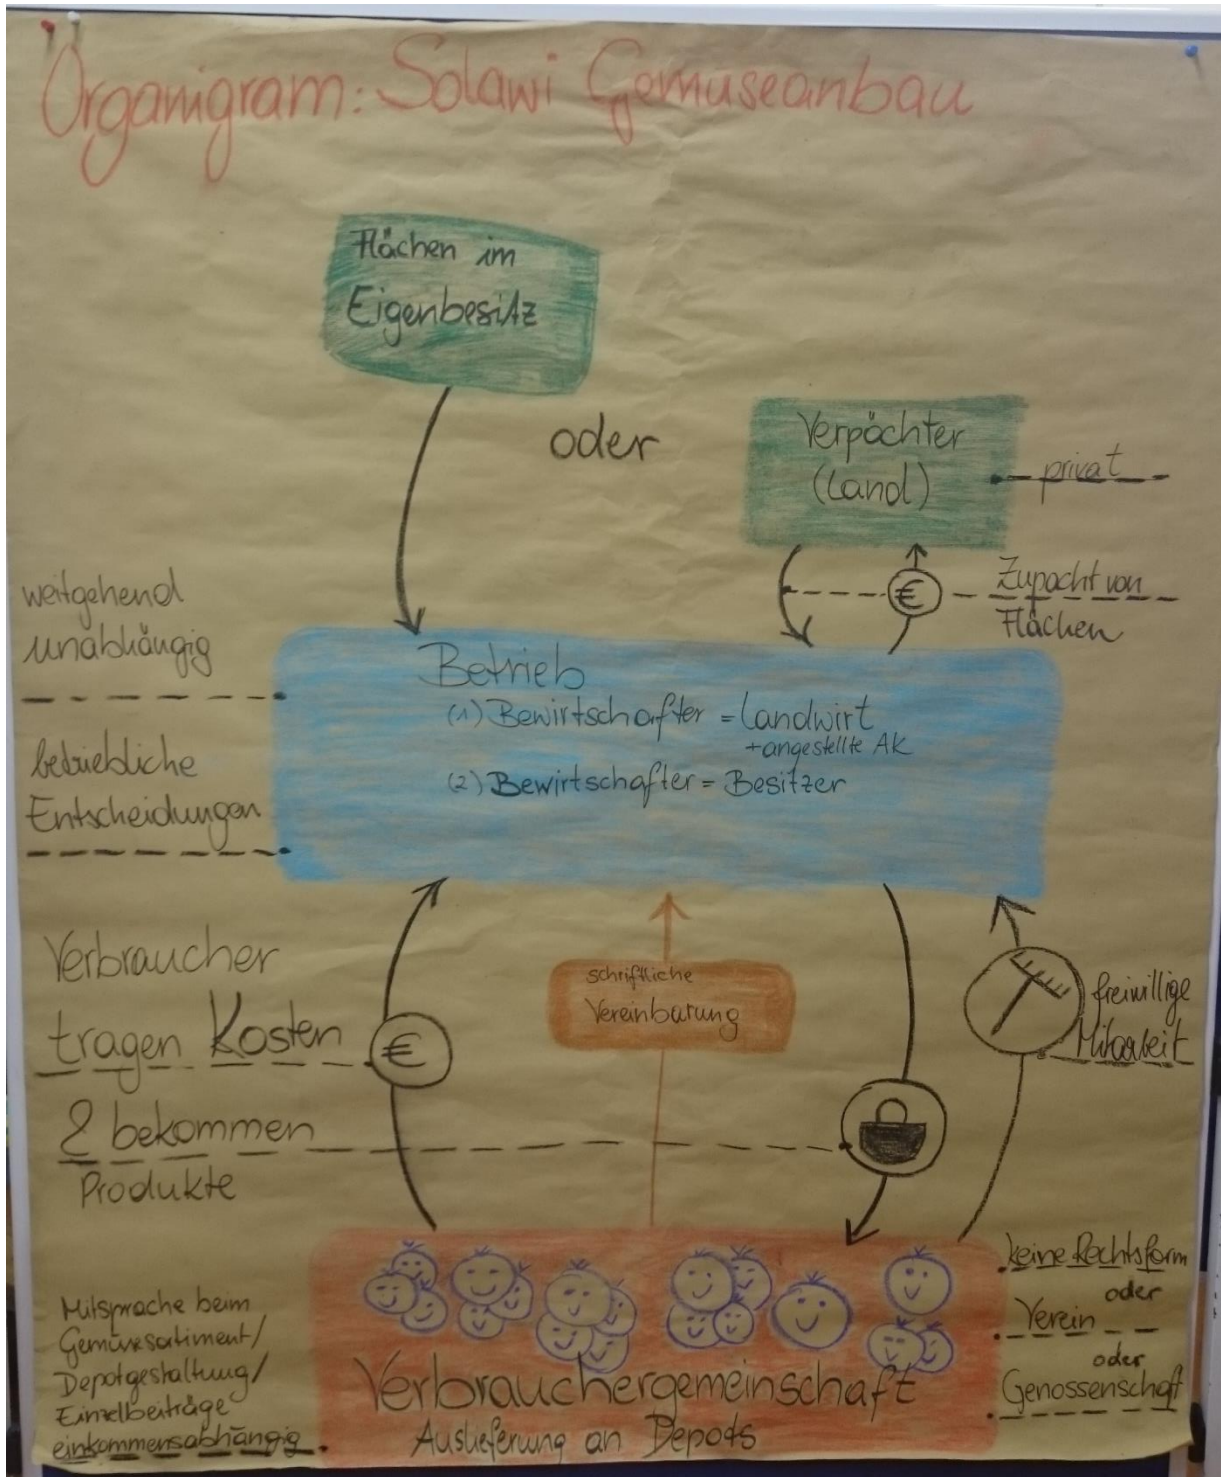 Organigram: Solawi Gemüseanbau
Flächen im
Eigenbesitz
oder
Verpächter
(Land)
privat
€
Zupacht von
Flächen
weitgehend
unabhängig
betriebliche
Entscheidungen
Betrieb
(1) Bewirtschafter = Landwirt
+angestellte AK
(2) Bewirtschafter = Besitzer
Verbraucher
tragen Kosten
€
& bekommen
Produkte
schriftliche
Vereinbarung
freiwillige
Mitarbeit
Mitsprache beim
Gemüsesortiment/
Depotgestaltung/
Einzelbeiträge
einkommensabhängig
Verbrauchergemeinschaft
Auslieferung an Depots
keine Rechtsform
oder
Verein
oder
Genossenschaft